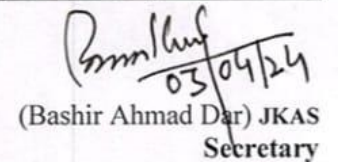 03/04/24
(Bashir Ahmad Dar) JKAS
Secretary